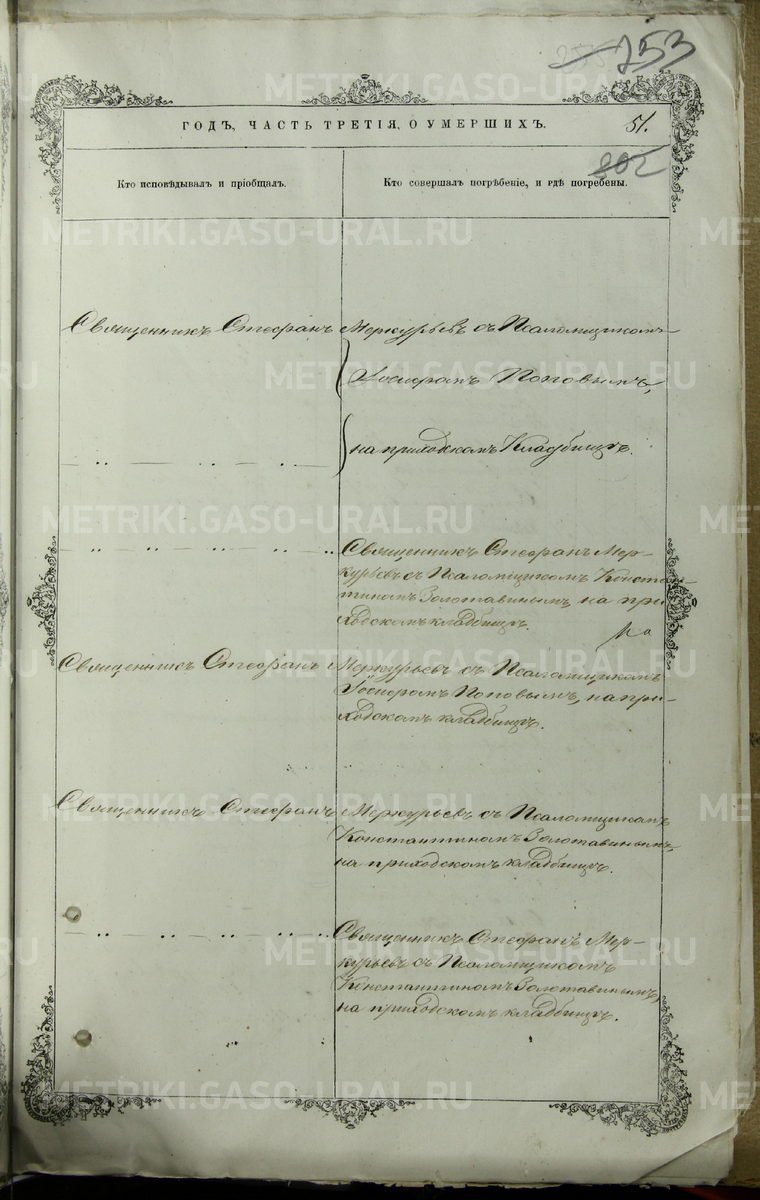 253
ГОДЪ, ЧАСТЬ ТРЕТІЯ, О УМЕРШИХЪ.
51.
202
Кто исповѣдывалъ и пріобщалъ.
Кто совершалъ погребеніе, и гдѣ погребены.
Священникъ Стефанъ Меркурьевъ съ Псаломщикомъ
Іосифомъ Поповымъ,
на приходскомъ кладбищѣ.
Священникъ Стефанъ Мер-
курьевъ съ Псаломщикомъ Констан-
тиномъ Золотавинымъ, на при-
ходскомъ кладбищѣ.
Священникъ Стефанъ Меркурьевъ съ Псаломщикомъ
Іосифомъ Поповымъ, на при-
ходскомъ кладбищѣ.
Священникъ Стефанъ Меркурьевъ съ Псаломщикомъ
Константиномъ Золотавинымъ,
на приходскомъ кладбищѣ.
Священникъ Стефанъ Мер-
курьевъ съ Псаломщикомъ
Константиномъ Золотавинымъ,
на приходскомъ кладбищѣ.
METRIKI.GASO-URAL.RU